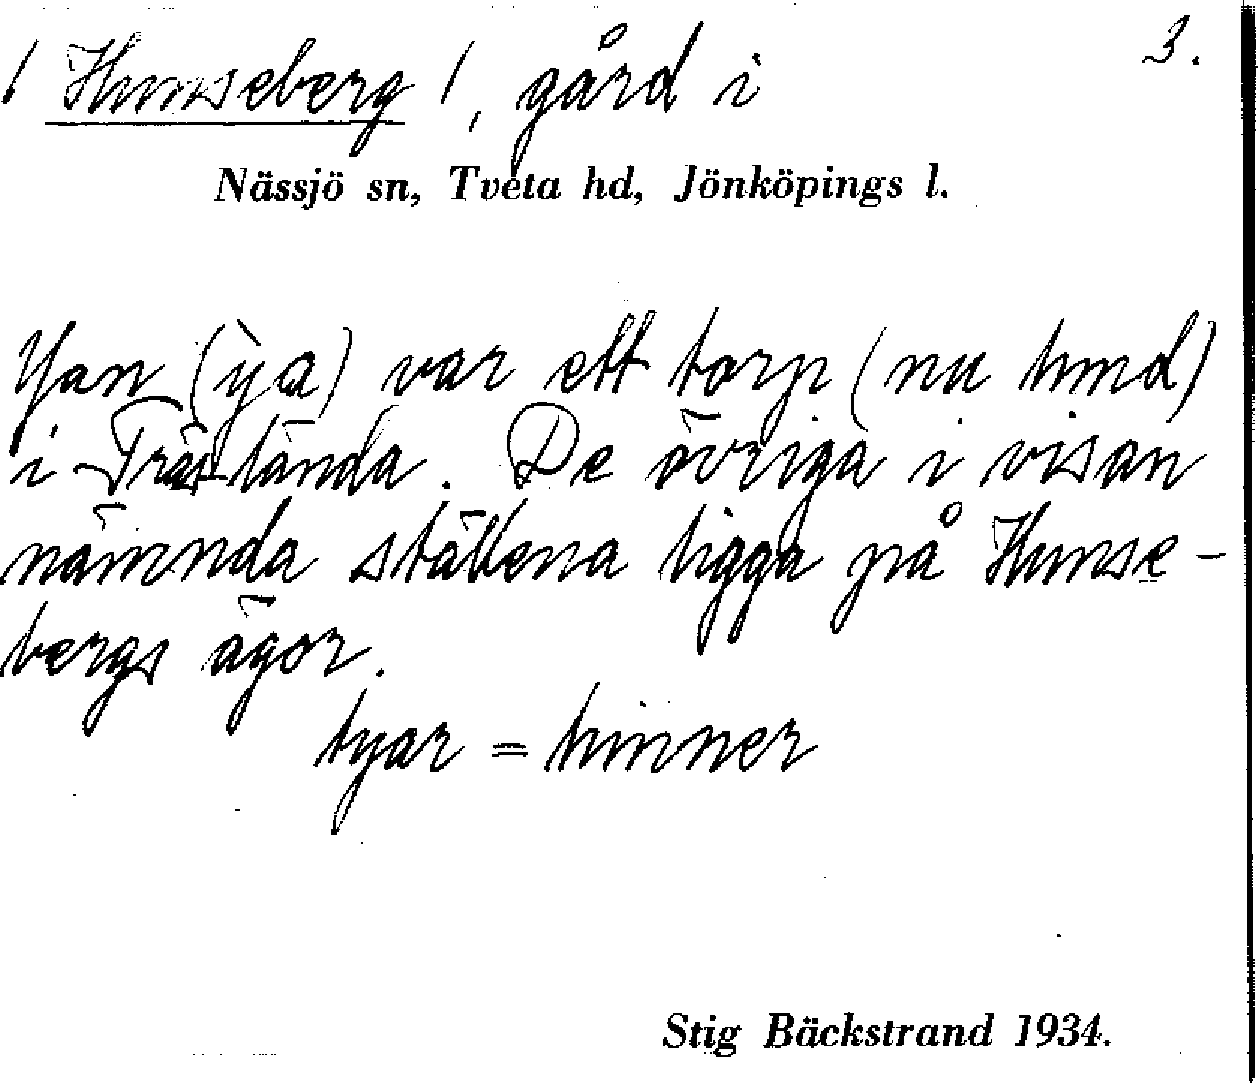 3.
/ Hunseberg /, gård i
Nässjö sn, Tveta hd, Jönköpings l.
Yan (ỳa) var ett torp (nu hmd)
i Träslända. De övriga i visan
nämnda ställena ligga på Hunse-
bergs ägor.
tyar = hinner
Stig Bäckstrand 1934.